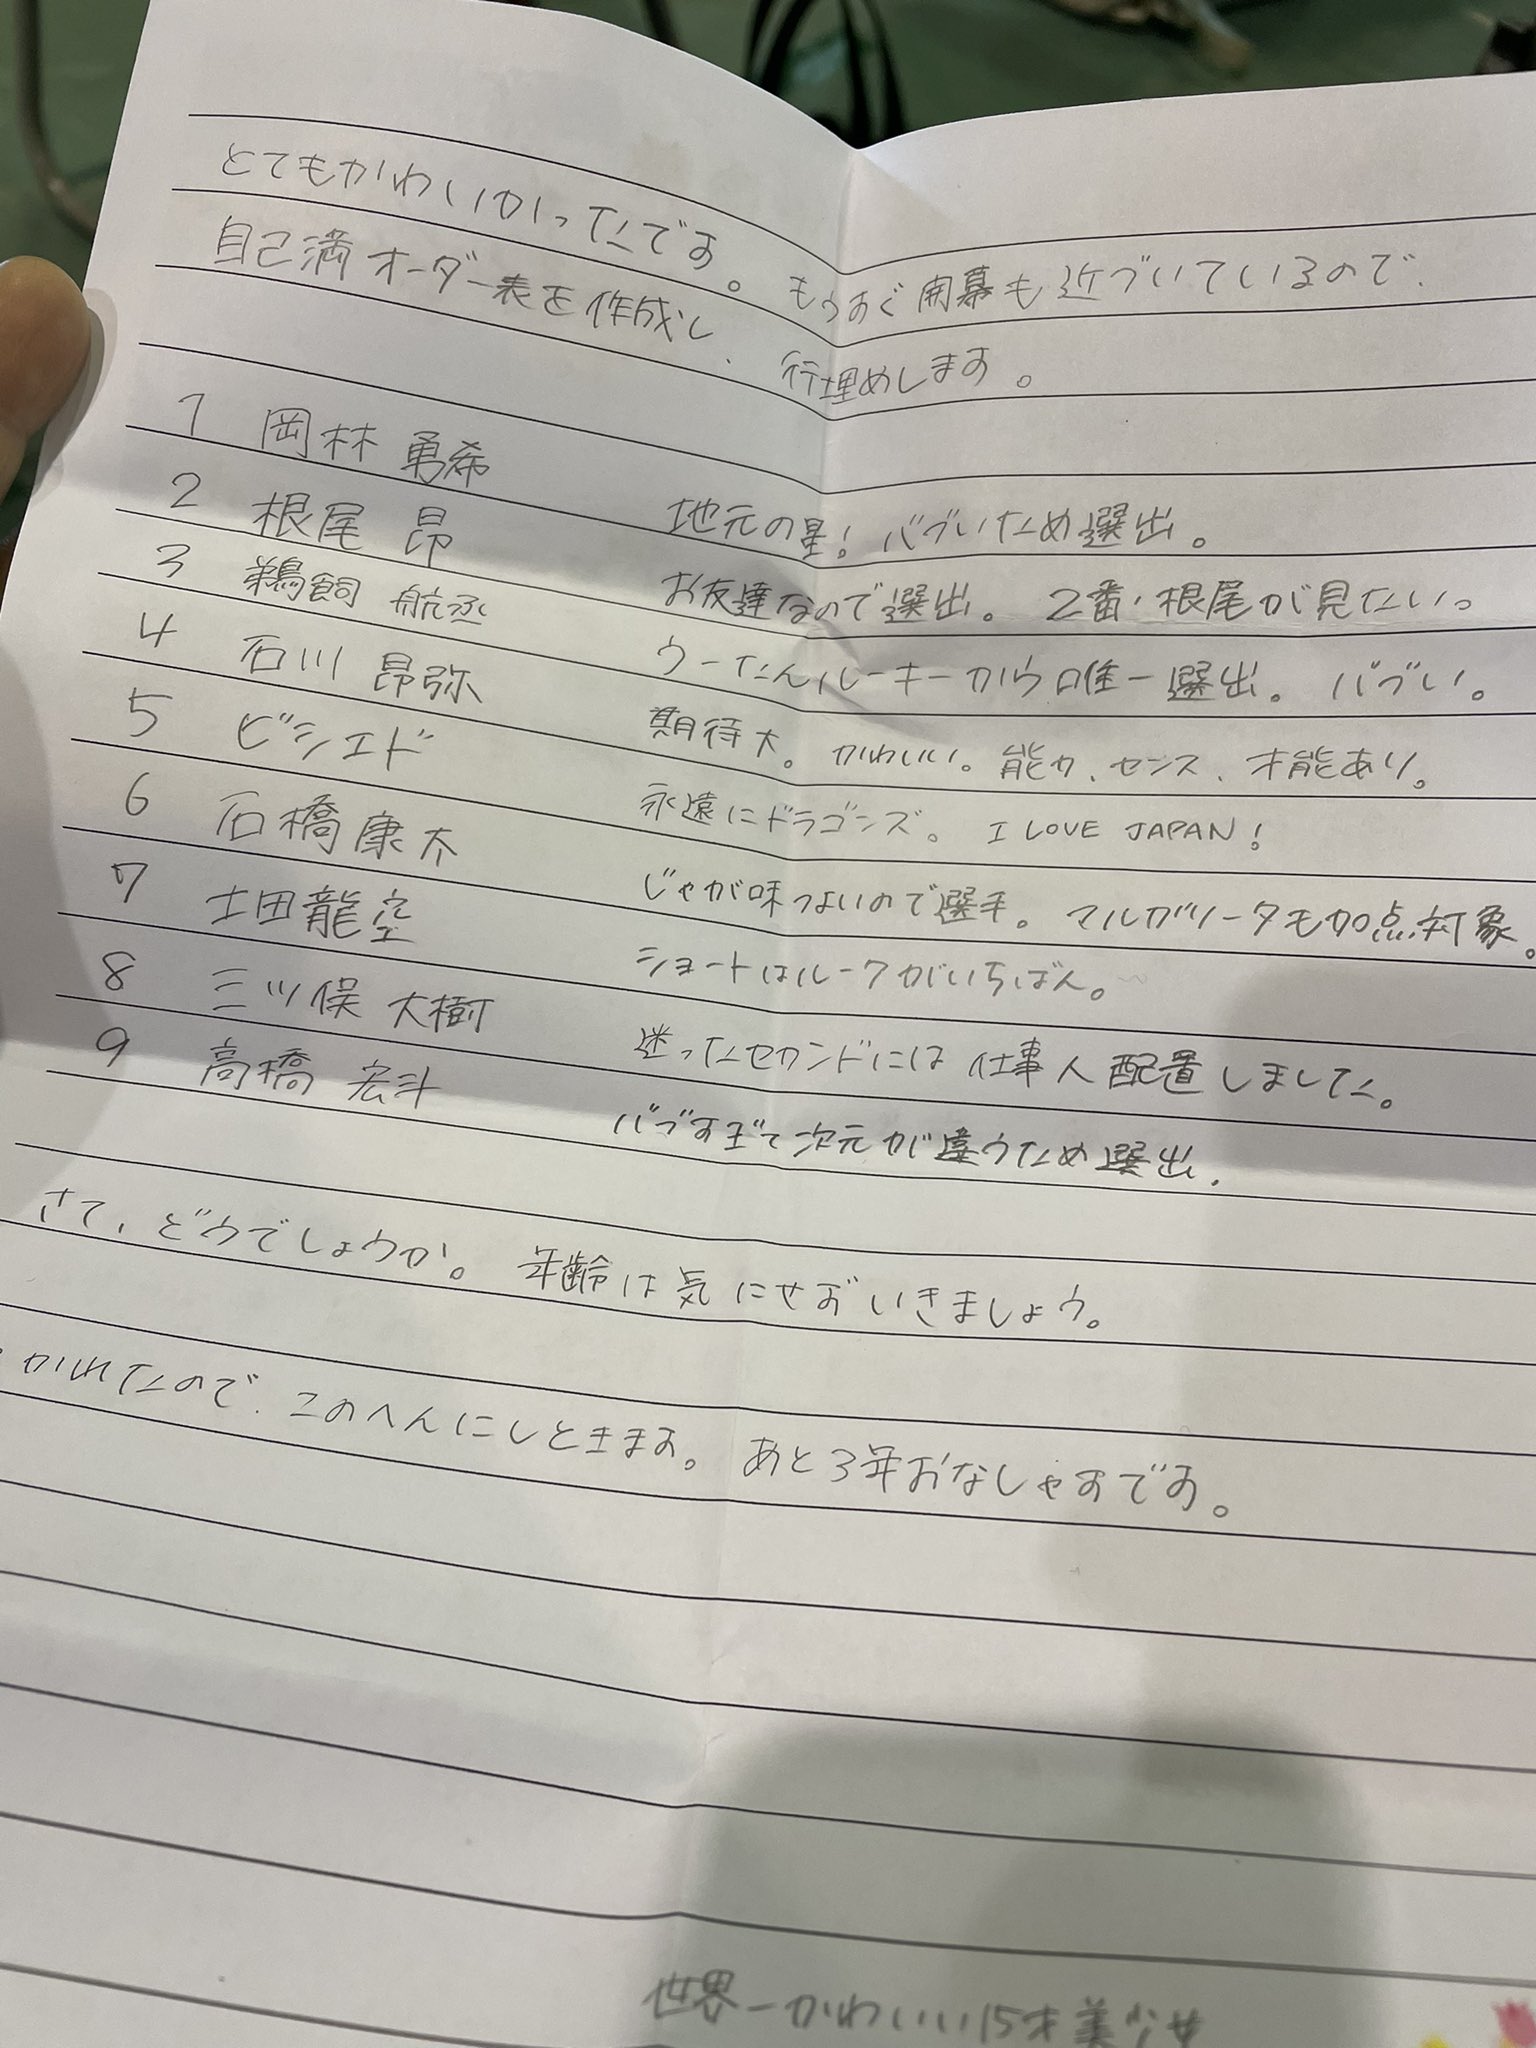 とてもかわいかったです。もうすぐ開幕も近づいているので、
自己満オーダー表を作成し、行埋めします。
1 岡林 勇希 地元の星！バブいため選出。
2 根尾 昂 お友達なので選出。2番・根尾が見たい。
3 鵜飼 航丞 うーたんルーキーから唯一選出。バブい。
4 石川 昂弥 期待大。かわいい。能力、センス、才能あり。
5 ビシエド 永遠にドラゴンズ。I LOVE JAPAN！
6 石橋康太 じゃが味つよいので選手。マルガリータも加点対象。
7 土田龍空 ショートはルークがいちばん。
8 三ツ俣 大樹 迷ったセカンドには仕事人配置しました。
9 高橋 宏斗 バブすぎて次元が違うため選出。
さて、どうでしょうか。年齢は気にせずいきましょう。
かれたので、このへんにしときます。あと3年おなしゃすです。
世界一かわいい15才美少女